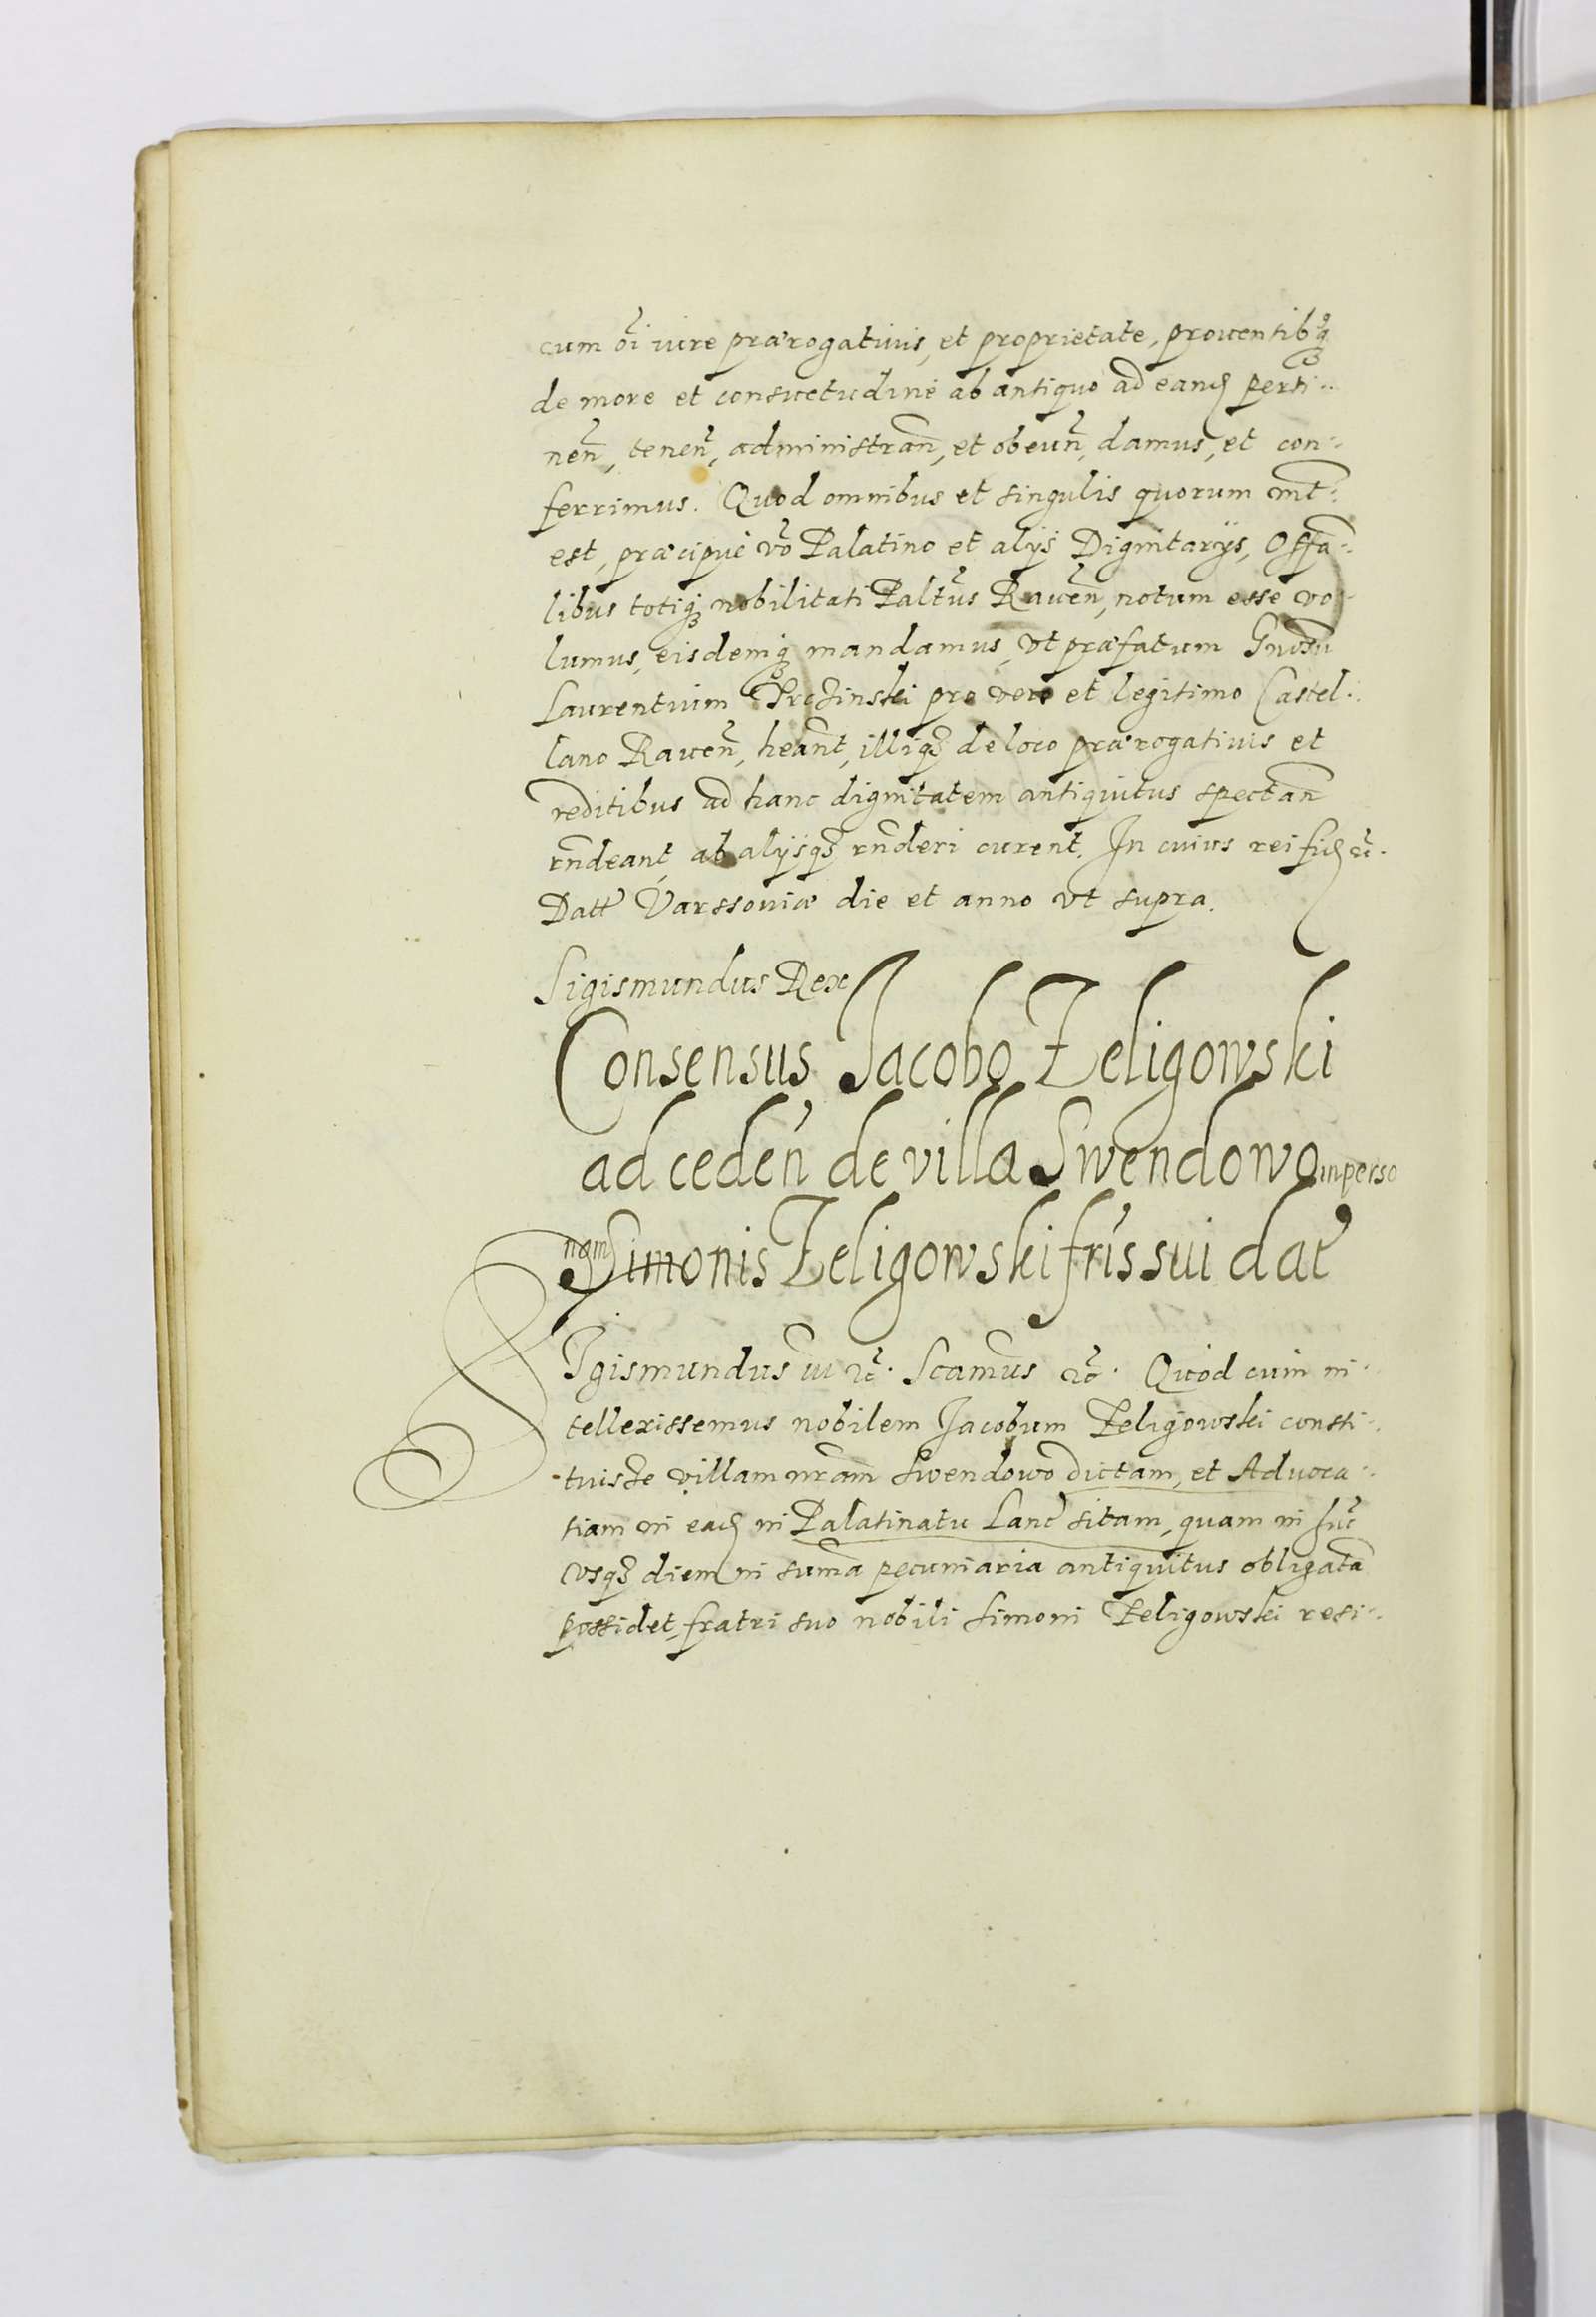 cum oi̅ iure prærogativis, et proprietate, proventibusq₃
de more et consuetudine ab antiquo ad eand perti-
nen̅, tenen̅, administran̅, et obeun̅, damus, et con-
ferrimus. Quod omnibus et singulis quorum int̅-
est, præcipue vo̅ Palatino et alijs Dignitarijs, Offa̅-
libus totiq₃ nobilitati Paltus Raven̅, notum esse vo-
lumus, eisdemq₃ mandamus, vt præfatum Gnosu̅
Laurentium pro vero et legitimo Castel-
lano Raven̅, heant̅, illiq₃ de loco prærogativis et
reditibus ad hanc dignitatem antiquitus spectan̅
rn̅deant, ab alijsq₃ rn̅deri curent. In cuius rei fid etc.
Datt Varssoviæ die et anno vt supra.
Sigismundus Rex
Consensus Jacobo Zeligowski
ad ceden̅ de villa Swendowo in perso
nam Simonis Zeligowski fris sui dat
SIgismundus iii etc. Scamus etc. Quod cum in-
tellexissemus nobilem Jacobum Zeligowski consti-
tuisse villam nram̅ Swendowo dictam, et Advoca-
tiam in ead in Palatinatu Lanc sitam, quam in hu̅c
vsq₃ diem in suma̅ pecuniaria antiquitus obligata̅
possidet, fratri suo nobili Simoni Zeligowski resi-